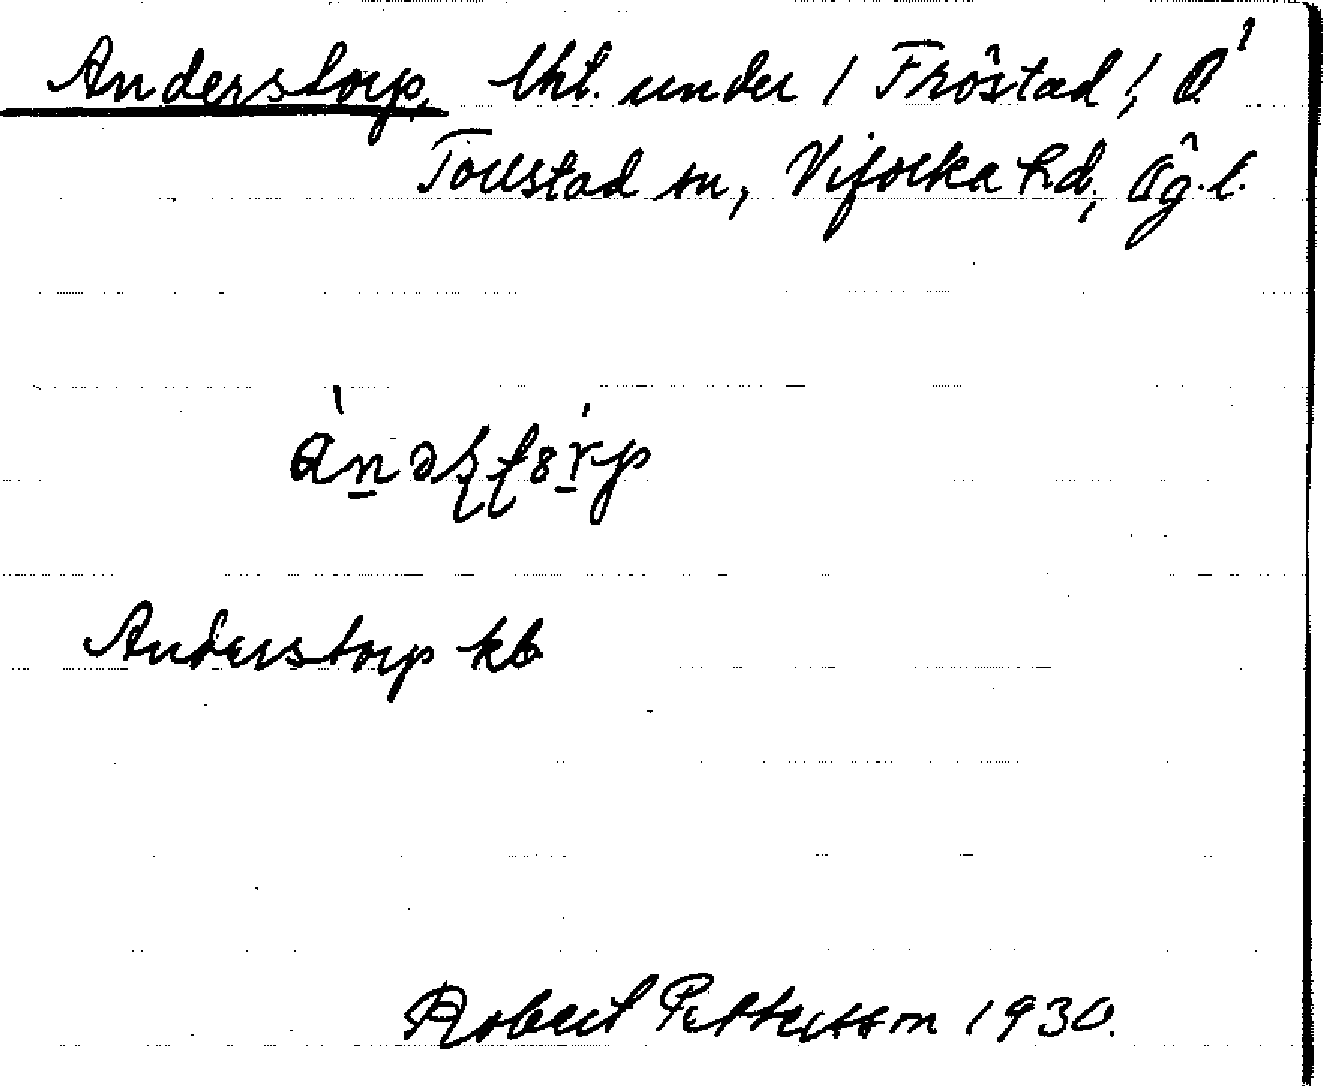 Anderstorp, lht. under 1 Fröstad!, Ö
Tollstad sn, Vifolka hd, Ög. l.
Anderstorp kb
Robert Pettersson 1930.